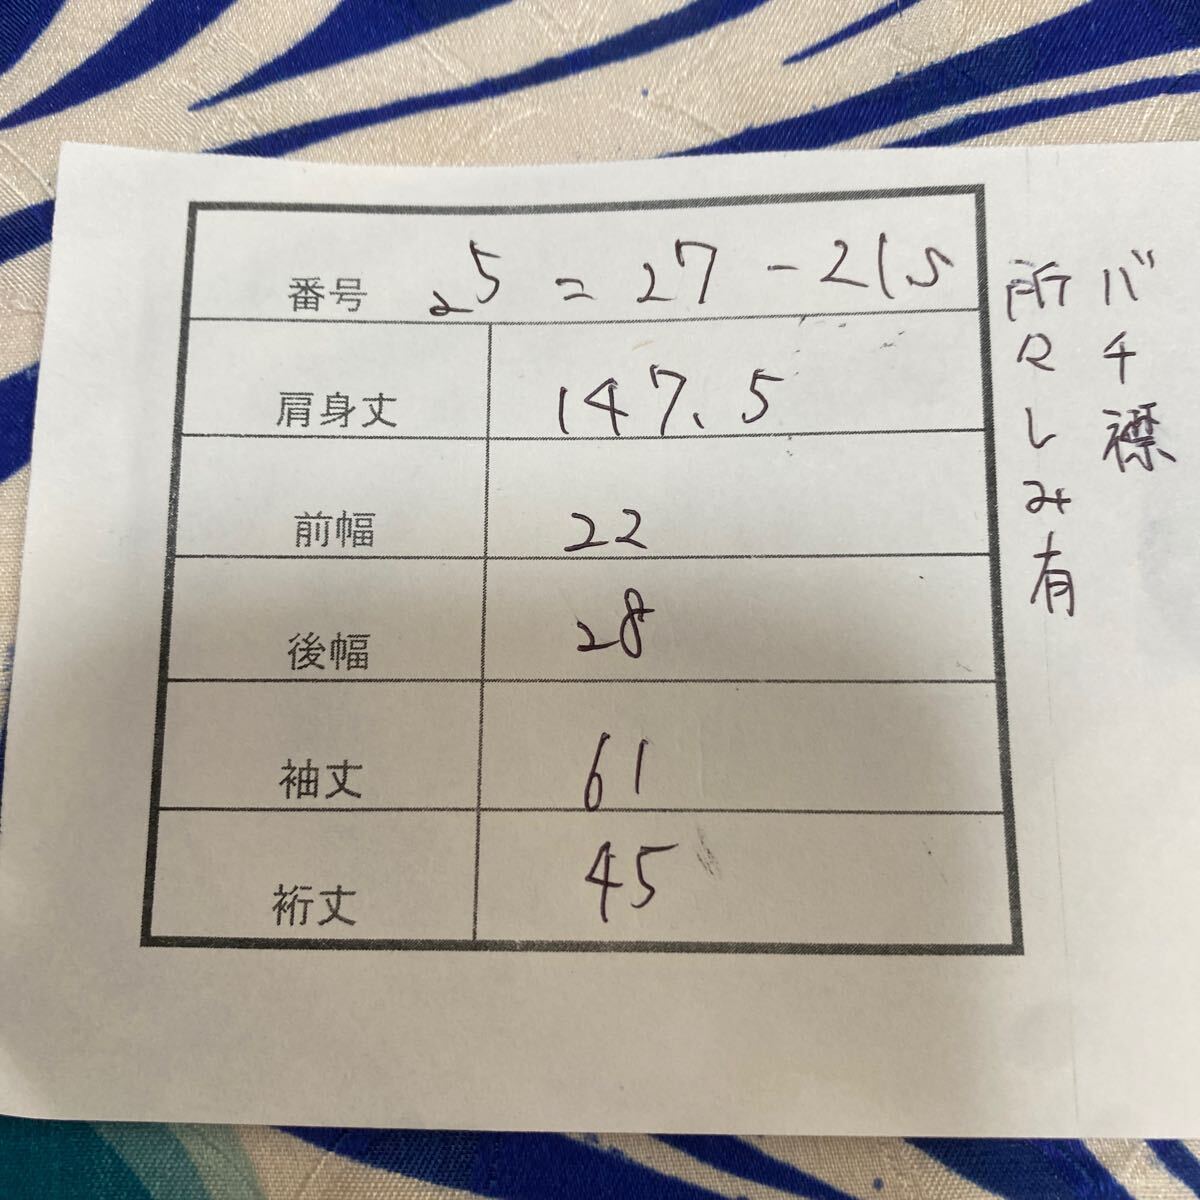 番号 25=27-215
肩身丈 147.5
前幅 22
後幅 28
袖丈 61
裄丈 45
バチ襟
所々しみ有